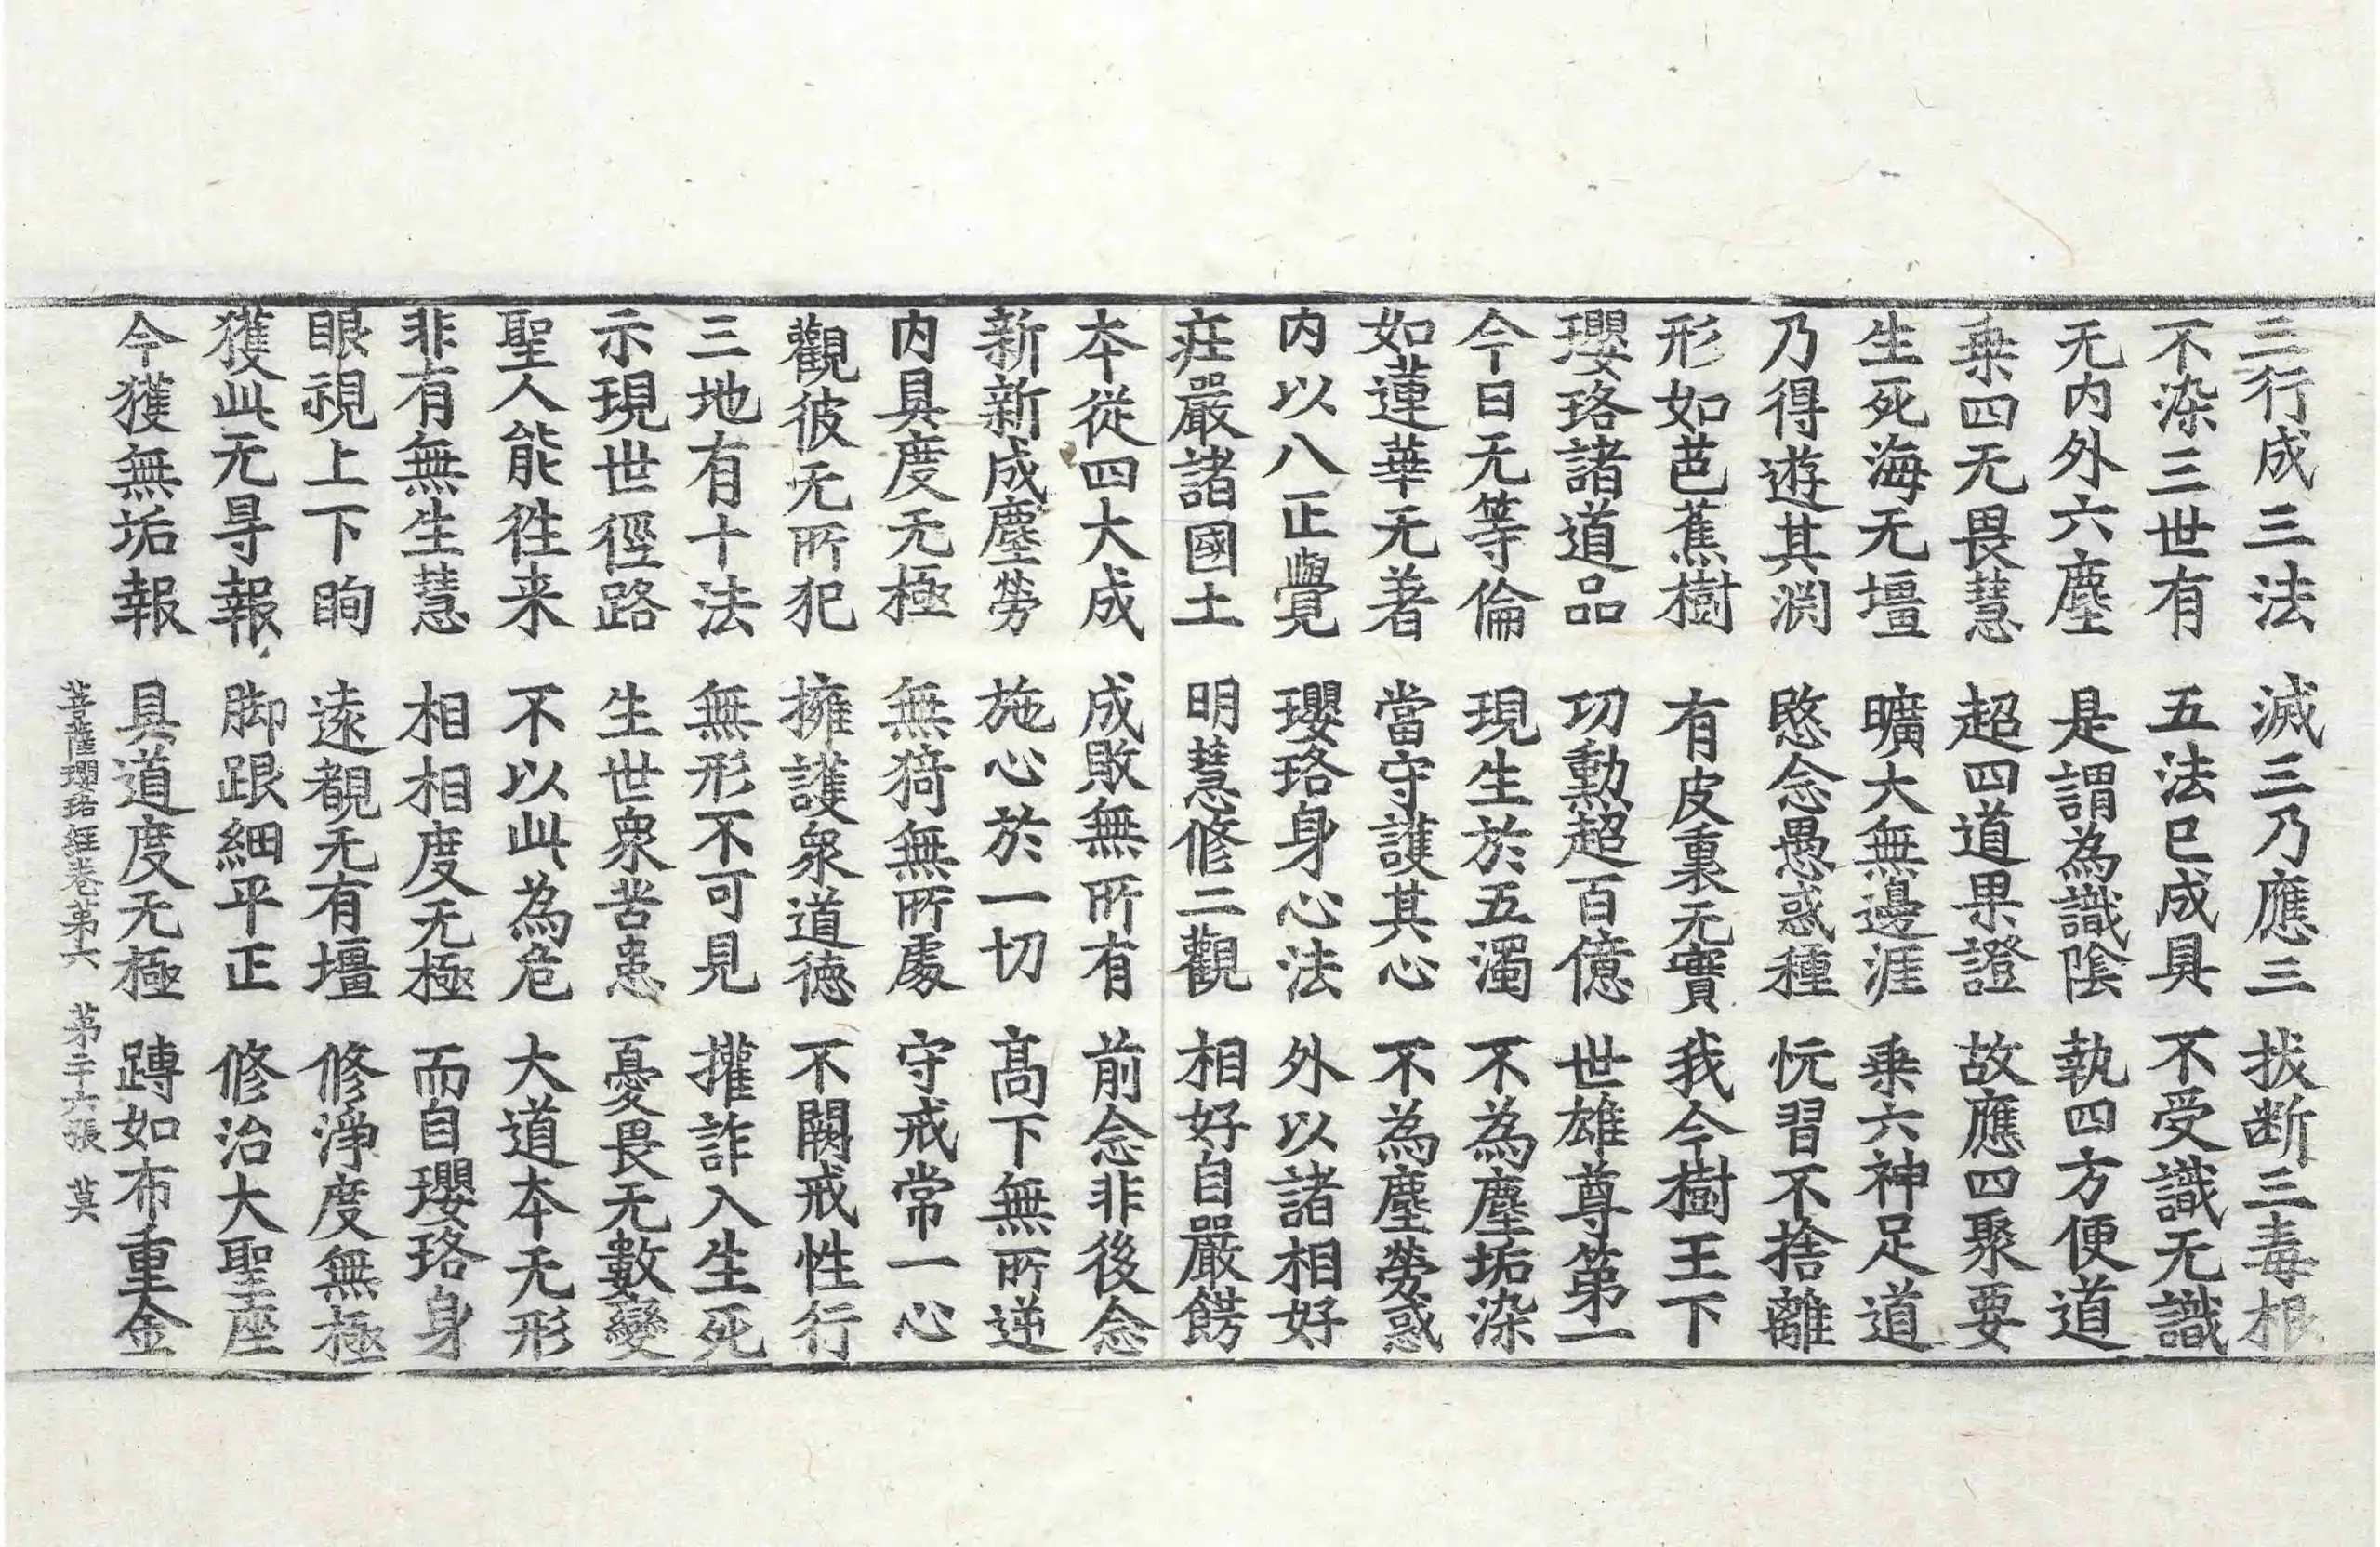 三行成三法 滅三乃應三 拔断三毒根
不染三世有 五法已成具 不受識无識
无内外六塵 是謂為識陰 執四方便道
乗四无畏慧 超四道果證 故應四聚要
生死海无壃 曠大無邊涯 乗六神足道
乃得遊其渕 愍念愚惑種 忨習不捨離
形如芭蕉樹 有皮裏无實 我今樹王下
瓔珞諸道品 功勳超百億 世雄尊第一
今日无等倫 現生於五濁 不為塵垢染
如蓮華无著 當守護其心 不為塵勞惑
内以八正覺 瓔珞身心法 外以諸相好
疰嚴諸國土 明慧修二觀 相好自嚴餝
本從四大成 成敗無所有 前念非後念
新新成塵勞 施心於一切 高下無所逆
内具度无極 無猗無所處 守戒常一心
觀彼无所犯 擁護衆道德 不闕戒性行
三地有十法 無形不可見 攉詐入生死
示現世徑路 生世衆苦患 憂畏无數變
聖人能徃来 不以此為危 大道本无形
非有無生慧 相相度无極 而自瓔珞身
眼視上下眴 遠覩无有壃 修淨度無極
獲此无㝵報 脚跟細平正 修治大聖座
今獲無垢報 具道度无極 蹲如布重金
菩薩瓔珞経卷第六 第二十六張 莫